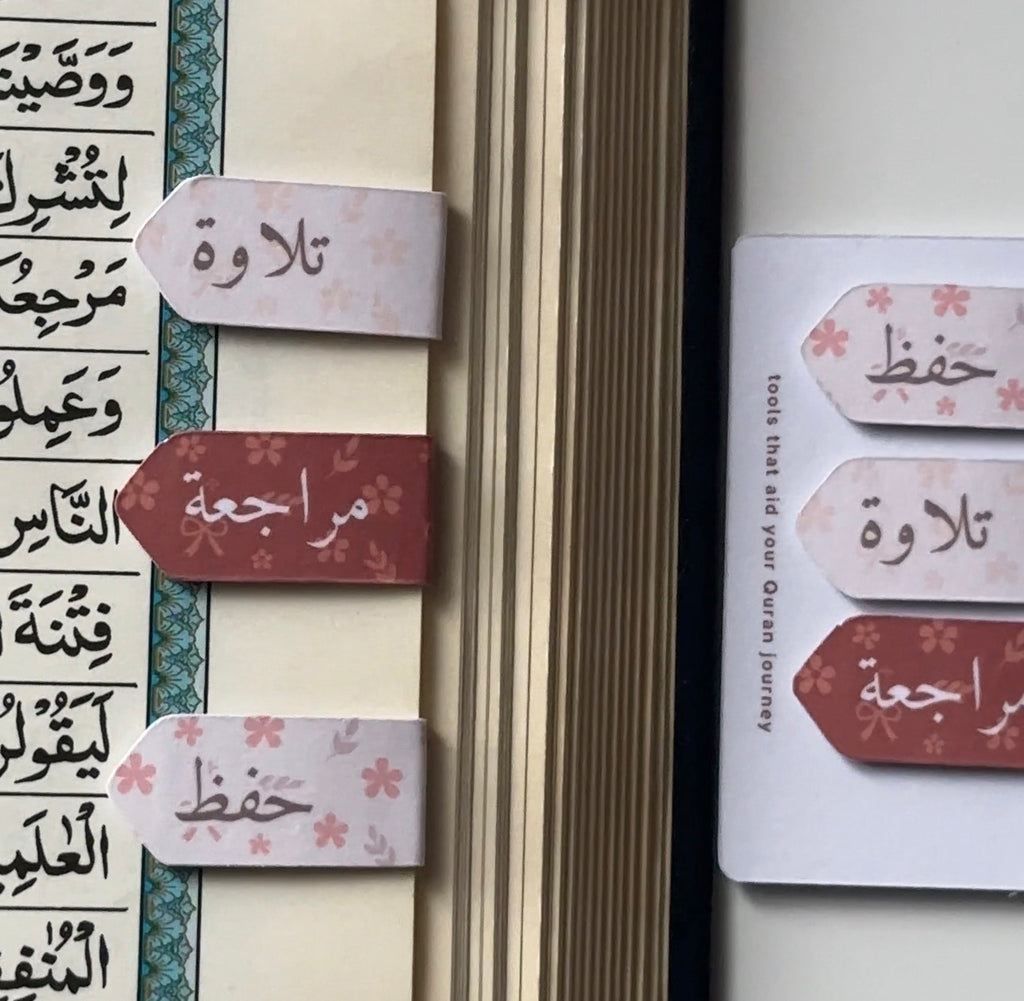 وَوَصَّيْنَ
لِتُشْرِكَ
مَرْجِعُ
وَعَمِلُو
النَّاسِ
فِتْنَةَ
لَيَقُولُ
الْعٰلَمِ
الْمُنٰفِقِ
تلاوة
مراجعة
حفظ
tools that aid your Quran journey
حفظ
تلاوة
مراجعة